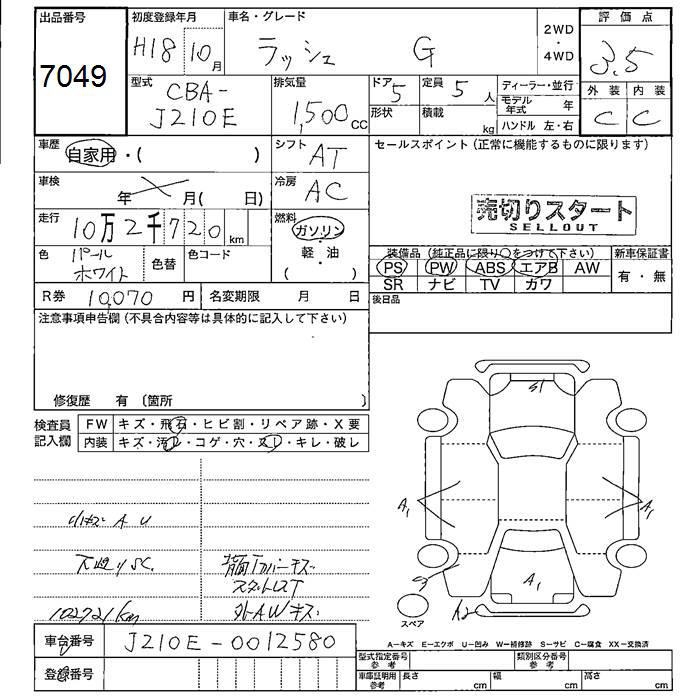 出品番号
7049
初度登録年月
H18 10 月
車名・グレード
ラッシュ G
2WD
・
4WD
評価点
3.5
型式
CBA-
J210E
排気量
1,500 CC
ドア 5
定員 5 人
形状
積載 kg
ディーラー・並行
モデル年式 年
ハンドル 左・右
外装 内装
C C
車歴
自家用・( )
シフト
AT
セールスポイント (正常に機能するものに限ります)
車検
年 月( 日)
冷房
AC
売切りスタート
SELLOUT
走行
10万2千720 km
燃料
ガソリン
・
軽・油
( )
色
パール
ホワイト
色替
色コード
装備品 (純正品に限り○をつけて下さい)
PS PW ABS エアB AW
SR ナビ TV カワ
新車保証書
有・無
R券 10,070 円
名変期限 月 日
後日品
注意事項申告欄 (不具合内容等は具体的に記入して下さい)
修復歴 有 〔箇所 〕
検査員
記入欄
FW キズ・飛石・ヒビ割・リペア跡・X要
内装 キズ・汚レ・コゲ・穴・スレ・キレ・破レ
小キズ A U
下廻りSC.
スタットレスT
外AWキズ
102721km
S1
A1
A1
A1
S
A2
スペア
車台番号 J210E-0012580
登録番号
A-キズ E-エクボ U-凹み W-補修跡 S-サビ C-腐食 XX-交換済
型式指定番号
参考
類別区分番号
参考
車庫証明用
参考
長さ cm
幅 cm
高さ cm